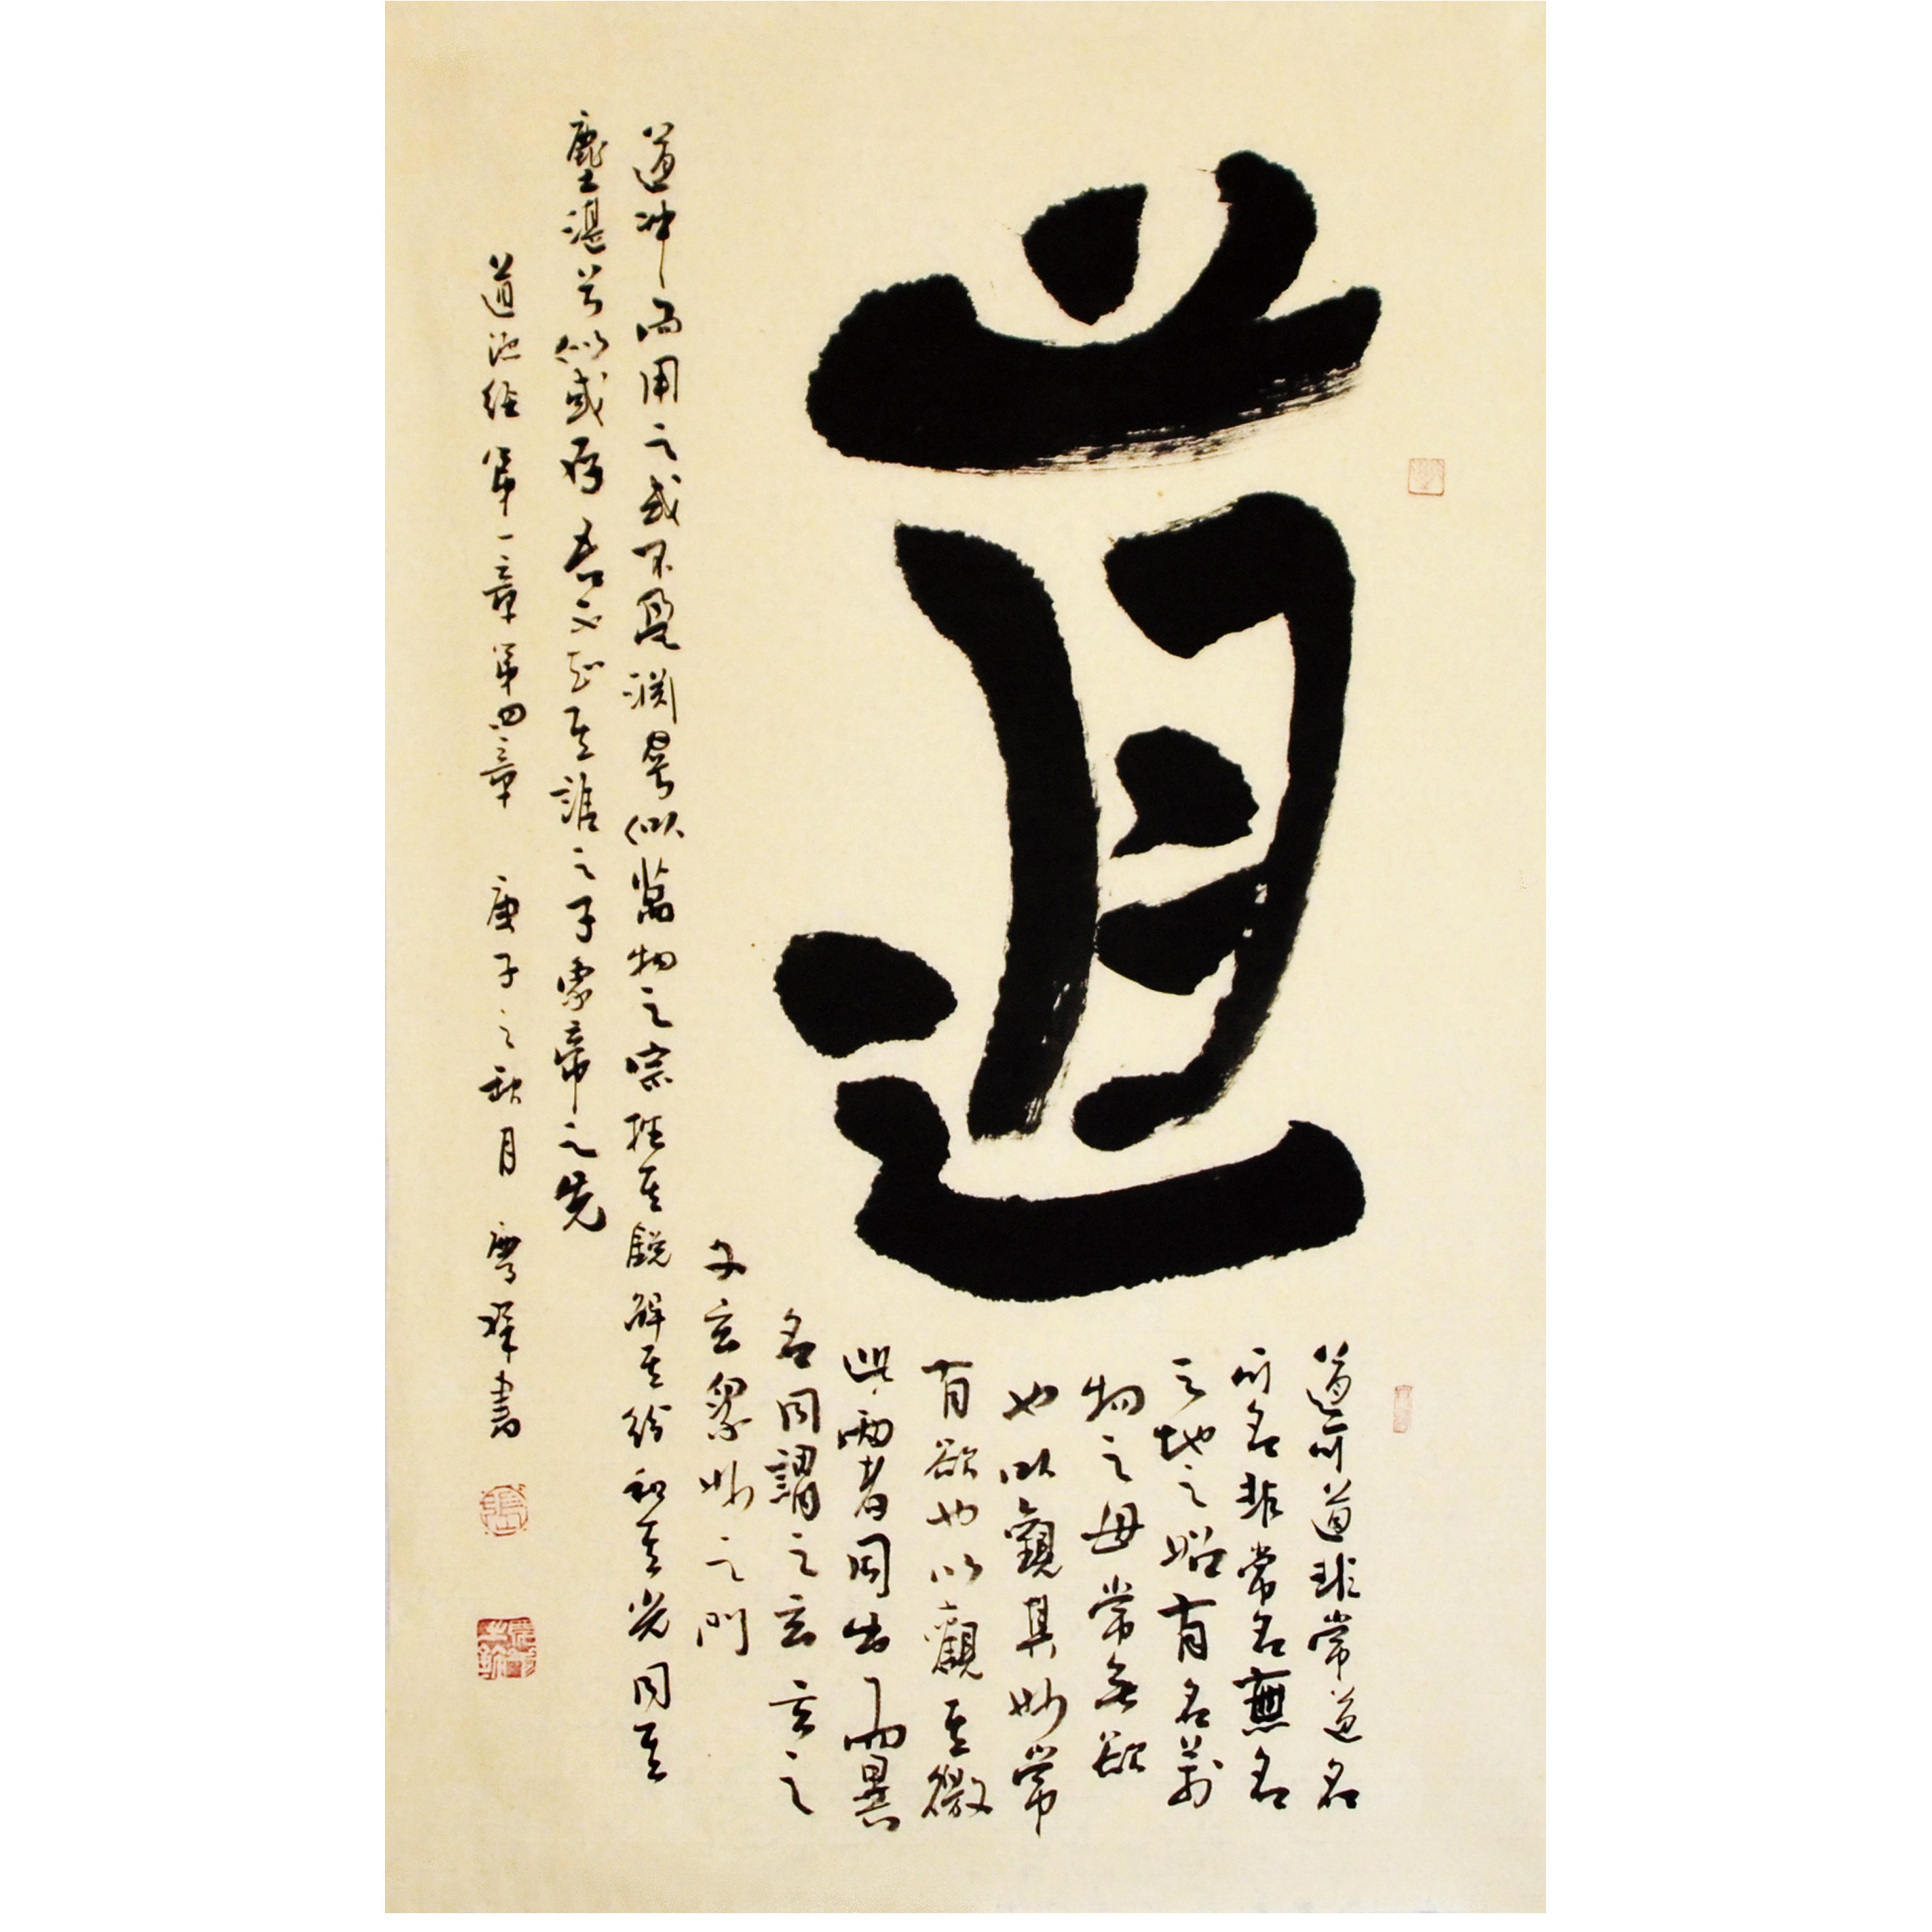 道
道可道非常道名
可名非常名無名
天地之始有名萬
物之母常無欲
也以觀其妙常
有欲也以觀其徼
此兩者同出而異
名同謂之玄玄之
又玄眾妙之門
道沖而用之或不盈淵兮似萬物之宗挫其銳解其紛和其光同其
塵湛兮似或存吾不知其誰之子象帝之先
道德經第一章第四章 庚子之秋月 書